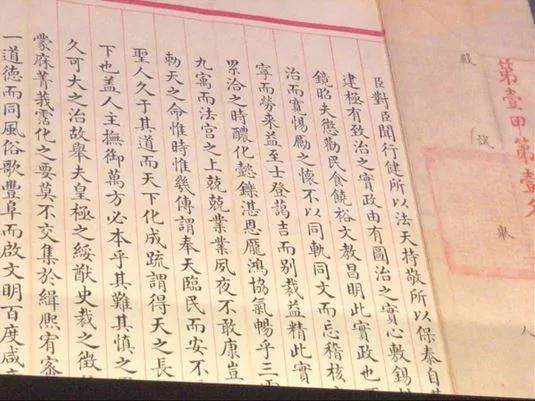 第壹甲第壹名
殿試舉人
臣對臣聞行健所以法天持敬所以保泰自
建極有致治之實政由有圖治之實心敷錫
鏡昭夫懲勸民食饒裕文教昌明此實政也
治而實惕勵之懷不以同軌同文而忘稽核
寧而勞來益至士登藹吉而別裁益精此實
累洽之時醲化懿鑠湛恩厖鴻協氣暢乎三
九寓而法宮之上兢兢業業夙夜不敢康豈
勅天之命惟時惟幾傳謂奉天臨民而安不
聖人久于其道而天下化成疏謂得天之長
下也蓋人主撫御萬方必本乎其難其慎之
久可大之治故舉夫皇極之綏猷史裁之徵
蒙庥菁莪霑化之要莫不交集於緝熙宥密
一道德而同風俗歌豐阜而啟文明百度咸